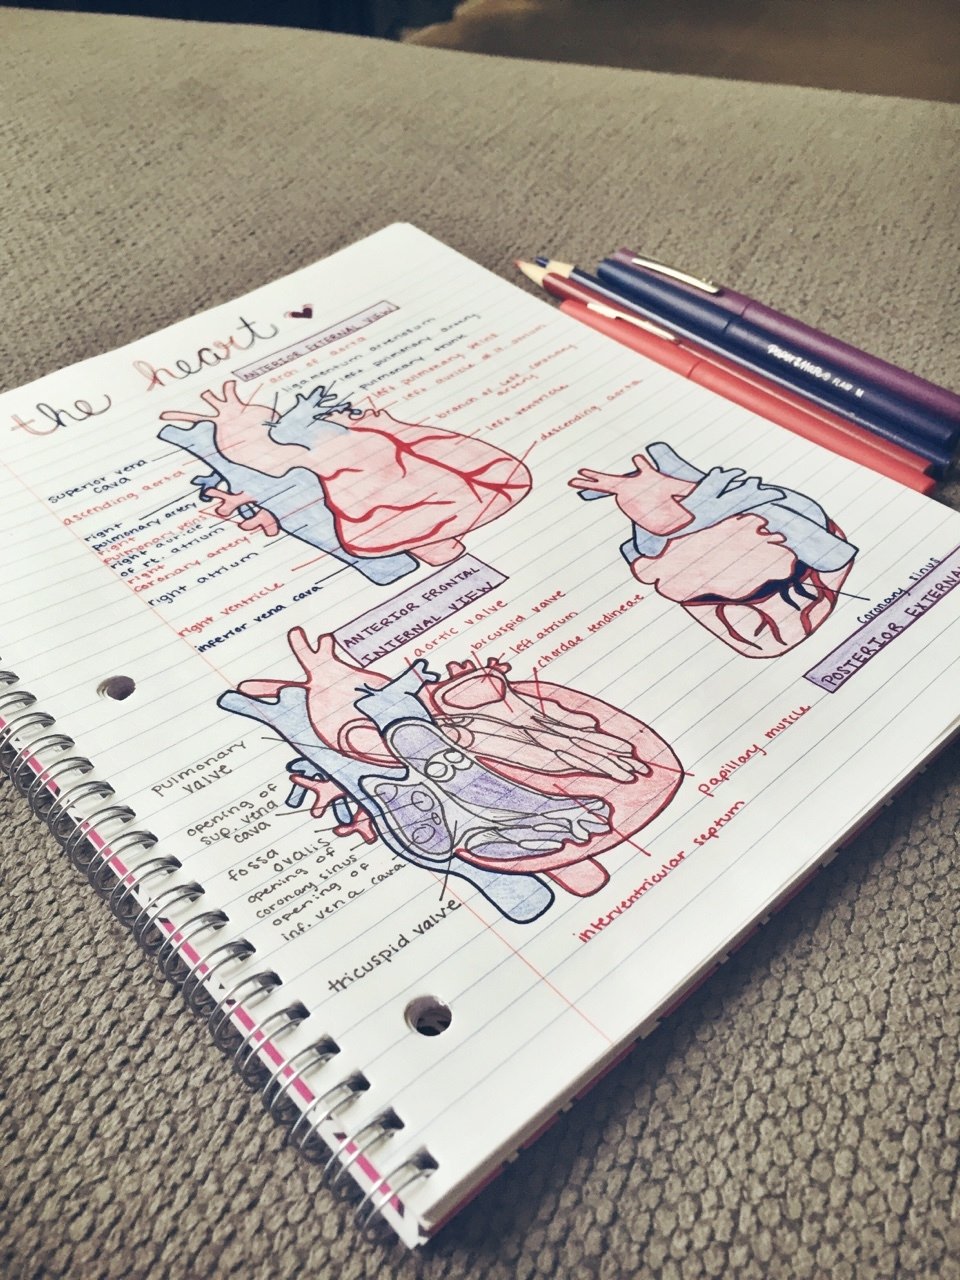 the heart
ANTERIOR EXTERNAL VIEW
arch of aorta
ligamentum arteriosum
left pulmonary artery
pulmonary trunk
left pulmonary veins
left auricle of lt. atrium
branch of left coronary
artery
left ventricle
descending aorta
superior vena
cava
ascending aorta
right
pulmonary artery
right
pulmonary veins
right auricle
of rt. atrium
right
coronary artery
right atrium
right ventricle
inferior vena cava
coronary sinus
POSTERIOR EXTERNAL
ANTERIOR FRONTAL
INTERNAL VIEW
aortic valve
bicuspid valve
left atrium
chordae tendineae
papillary muscle
interventricular septum
pulmonary
valve
opening of
sup. vena
cava
fossa ovalis
opening of
coronary sinus
opening of
inf. vena cava
tricuspid valve
PaperMate® FLAIR M